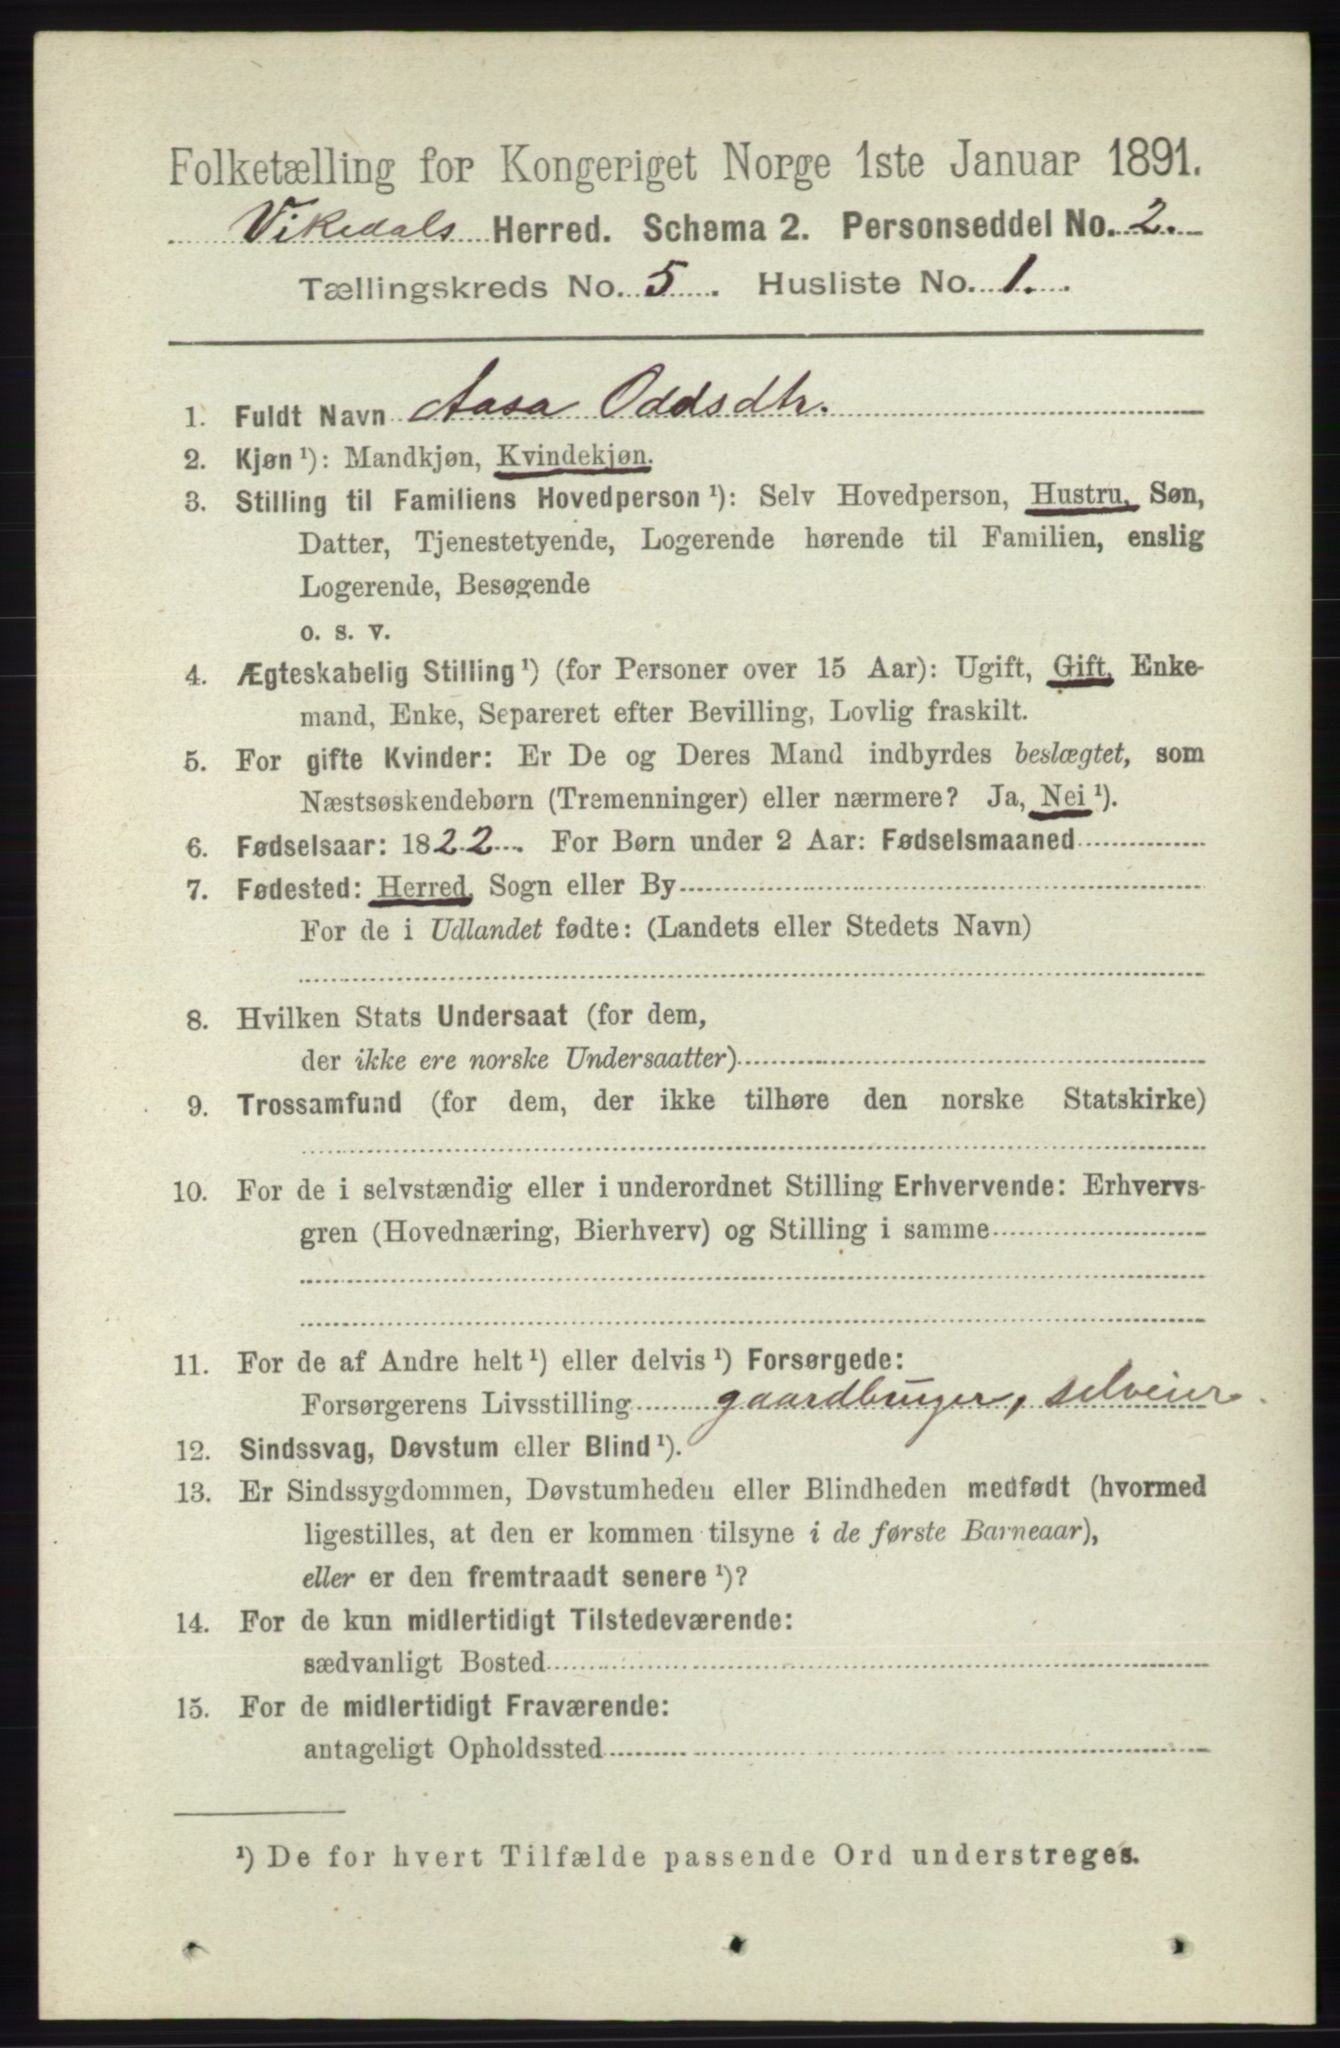 Folketælling for Kongeriget Norge 1ste Januar 1891.
Vikedals Herred. Schema 2. Personseddel No. 2.
Tællingskreds No. 5. Husliste No. 1.
1. Fuldt Navn Aasa Oddsdtr.
2. Kjøn ¹): Mandkjøn, Kvindekjøn.
3. Stilling til Familiens Hovedperson ¹): Selv Hovedperson, Hustru, Søn,
Datter, Tjenestetyende, Logerende hørende til Familien, enslig
Logerende, Besøgende
o. s. v.
4. Ægteskabelig Stilling ¹) (for Personer over 15 Aar): Ugift, Gift, Enke-
mand, Enke, Separeret efter Bevilling, Lovlig fraskilt.
5. For gifte Kvinder: Er De og Deres Mand indbyrdes beslægtet, som
Næstsøskendebørn (Tremenninger) eller nærmere? Ja, Nei ¹).
6. Fødselsaar: 1822. For Børn under 2 Aar: Fødselsmaaned
7. Fødested: Herred, Sogn eller By
For de i Udlandet fødte: (Landets eller Stedets Navn)
8. Hvilken Stats Undersaat (for dem,
der ikke ere norske Undersaatter)
9. Trossamfund (for dem, der ikke tilhøre den norske Statskirke)
10. For de i selvstændig eller i underordnet Stilling Erhvervende: Erhvervs-
gren (Hovednæring, Bierhverv) og Stilling i samme
11. For de af Andre helt ¹) eller delvis ¹) Forsørgede:
Forsørgerens Livsstilling gaardbruger, selveier
12. Sindssvag, Døvstum eller Blind ¹).
13. Er Sindssygdommen, Døvstumheden eller Blindheden medfødt (hvormed
ligestilles, at den er kommen tilsyne i de første Barneaar),
eller er den fremtraadt senere ¹)?
14. For de kun midlertidigt Tilstedeværende:
sædvanligt Bosted
15. For de midlertidigt Fraværende:
antageligt Opholdssted
¹) De for hvert Tilfælde passende Ord understreges.